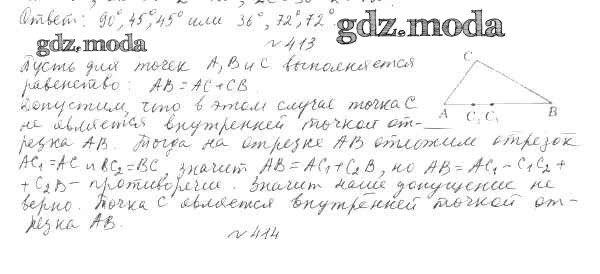 Ответ: 90°, 45°, 45° или 36°, 72°, 72°.
gdz.moda
gdz.moda
№413
Пусть для точек A, B и C выполняется
равенство: AB = AC + CB.
Допустим, что в этом случае точка C
не является внутренней точкой от-
резка AB. Тогда на отрезке AB отложим отрезок
AC₁ = AC и BC₂ = BC, значит AB = AC₁ + C₂B, но AB = AC₁ - C₁C₂ +
+ C₂B - противоречие. Значит наше допущение не
верно. Точка C является внутренней точкой от-
резка AB.
C
A
C₂ C₁
B
№414